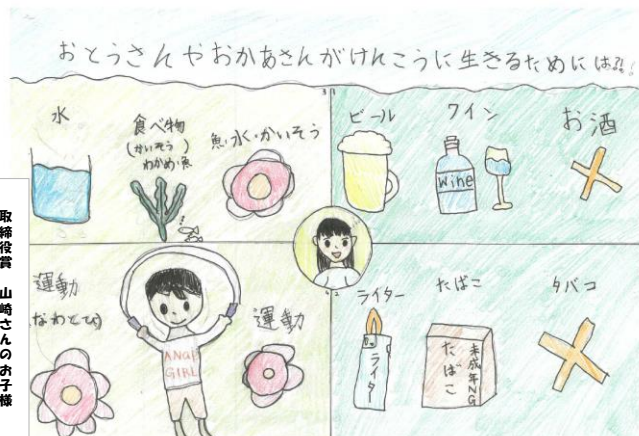 おとうさんやおかあさんがけんこうに生きるためには?!
水
食べ物
(かいそう)
わかめ・魚
魚・水・かいそう
ビール
ワイン
お酒
Wine
運動
(なわとび)
ANGE
GIRL
運動
ライター
ライター
たばこ
未成年NG
たばこ
タバコ
取締役賞 山崎さんのお子様